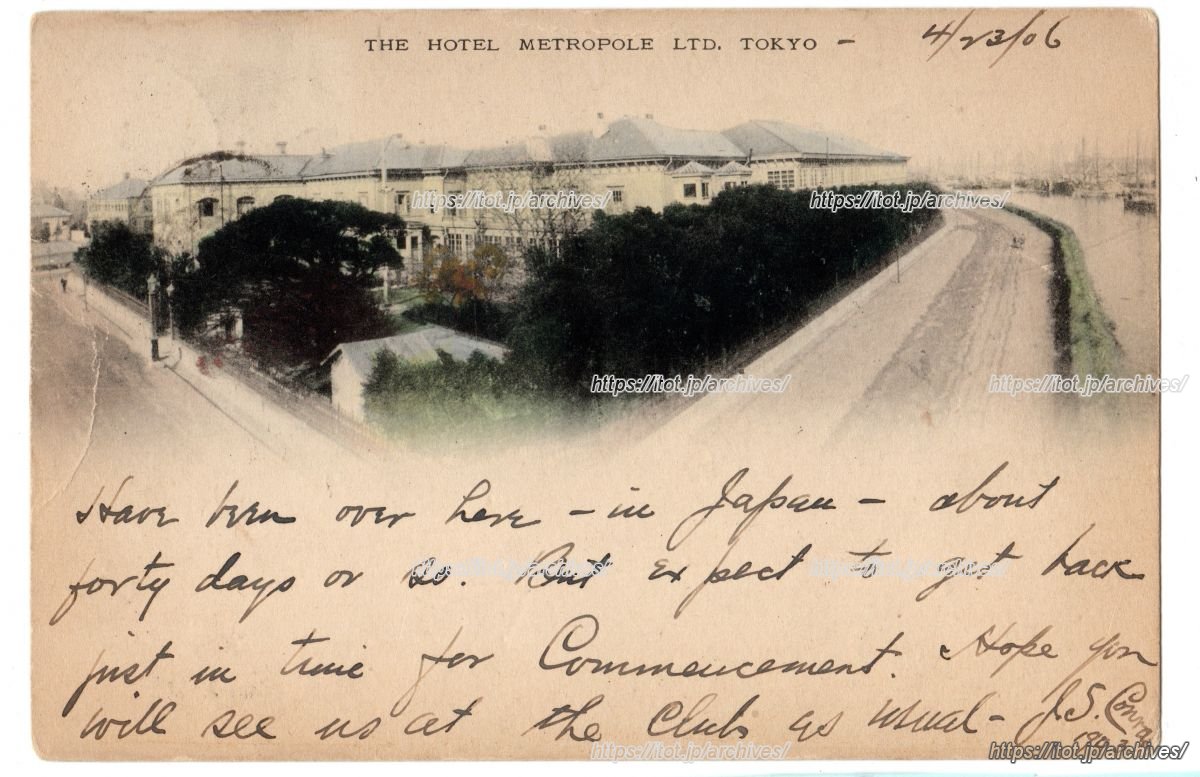 THE HOTEL METROPOLE LTD. TOKYO -
4/23/06
https://itot.jp/archives/
https://itot.jp/archives/
https://itot.jp/archives/
https://itot.jp/archives/
Have been over here - in Japan - about
forty days or so. But expect to get back
https://itot.jp/archives/
https://itot.jp/archives/
just in time for Commencement. Hope you
will see us at the Club as usual - J.S.
https://itot.jp/archives/
https://itot.jp/archives/